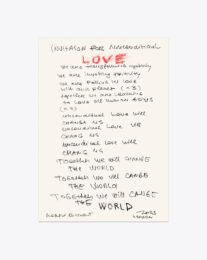 INVITASON FOR Unconditional
LOVE
We are transforming
We are inviting positivity
We are falling in love
with our planet (x3)
together we are learning
to love all human beings
(x3)
unconditional love will
change us
unconditional love will
CHANG US
unconditional love will
CHANG US
TOGETHER WE WILL CHANGE
THE WORLD
TOGETHER WE WILL CANGE
THE WORLD
TOGETHER WE WILL CANGE
THE WORLD
2023